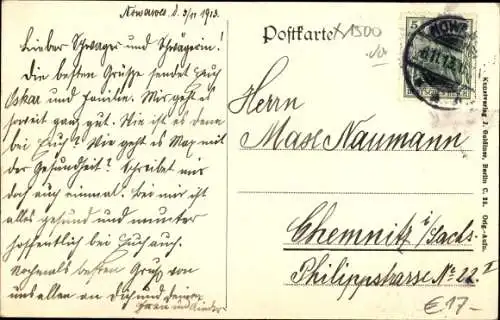 Nowawes d. 5/11 1913.
Lieber Schwager und Schwägerin!
Die besten Grüsse sendet Euch
Oskar und Familie. Mir geht es
soweit ganz gut. Wie ist es denn
bei Euch? Wie geht es Max mit
der Gesundheit? Schreibt mir
doch auch einmal. Bei mir ist
alles gesund und munter
hoffentlich bei Euch auch.
Nochmals besten Gruß von
uns allen an Dich und deine
Frau und Kinder
Postkarte
1500
5
NOW
Herrn
Max Naumann
Chemnitz i/Sachs.
Philippstrasse No 22 II
€ 17.-
Kunstverlag J. Goldiner, Berlin C. 22. Orig.-Aufn.